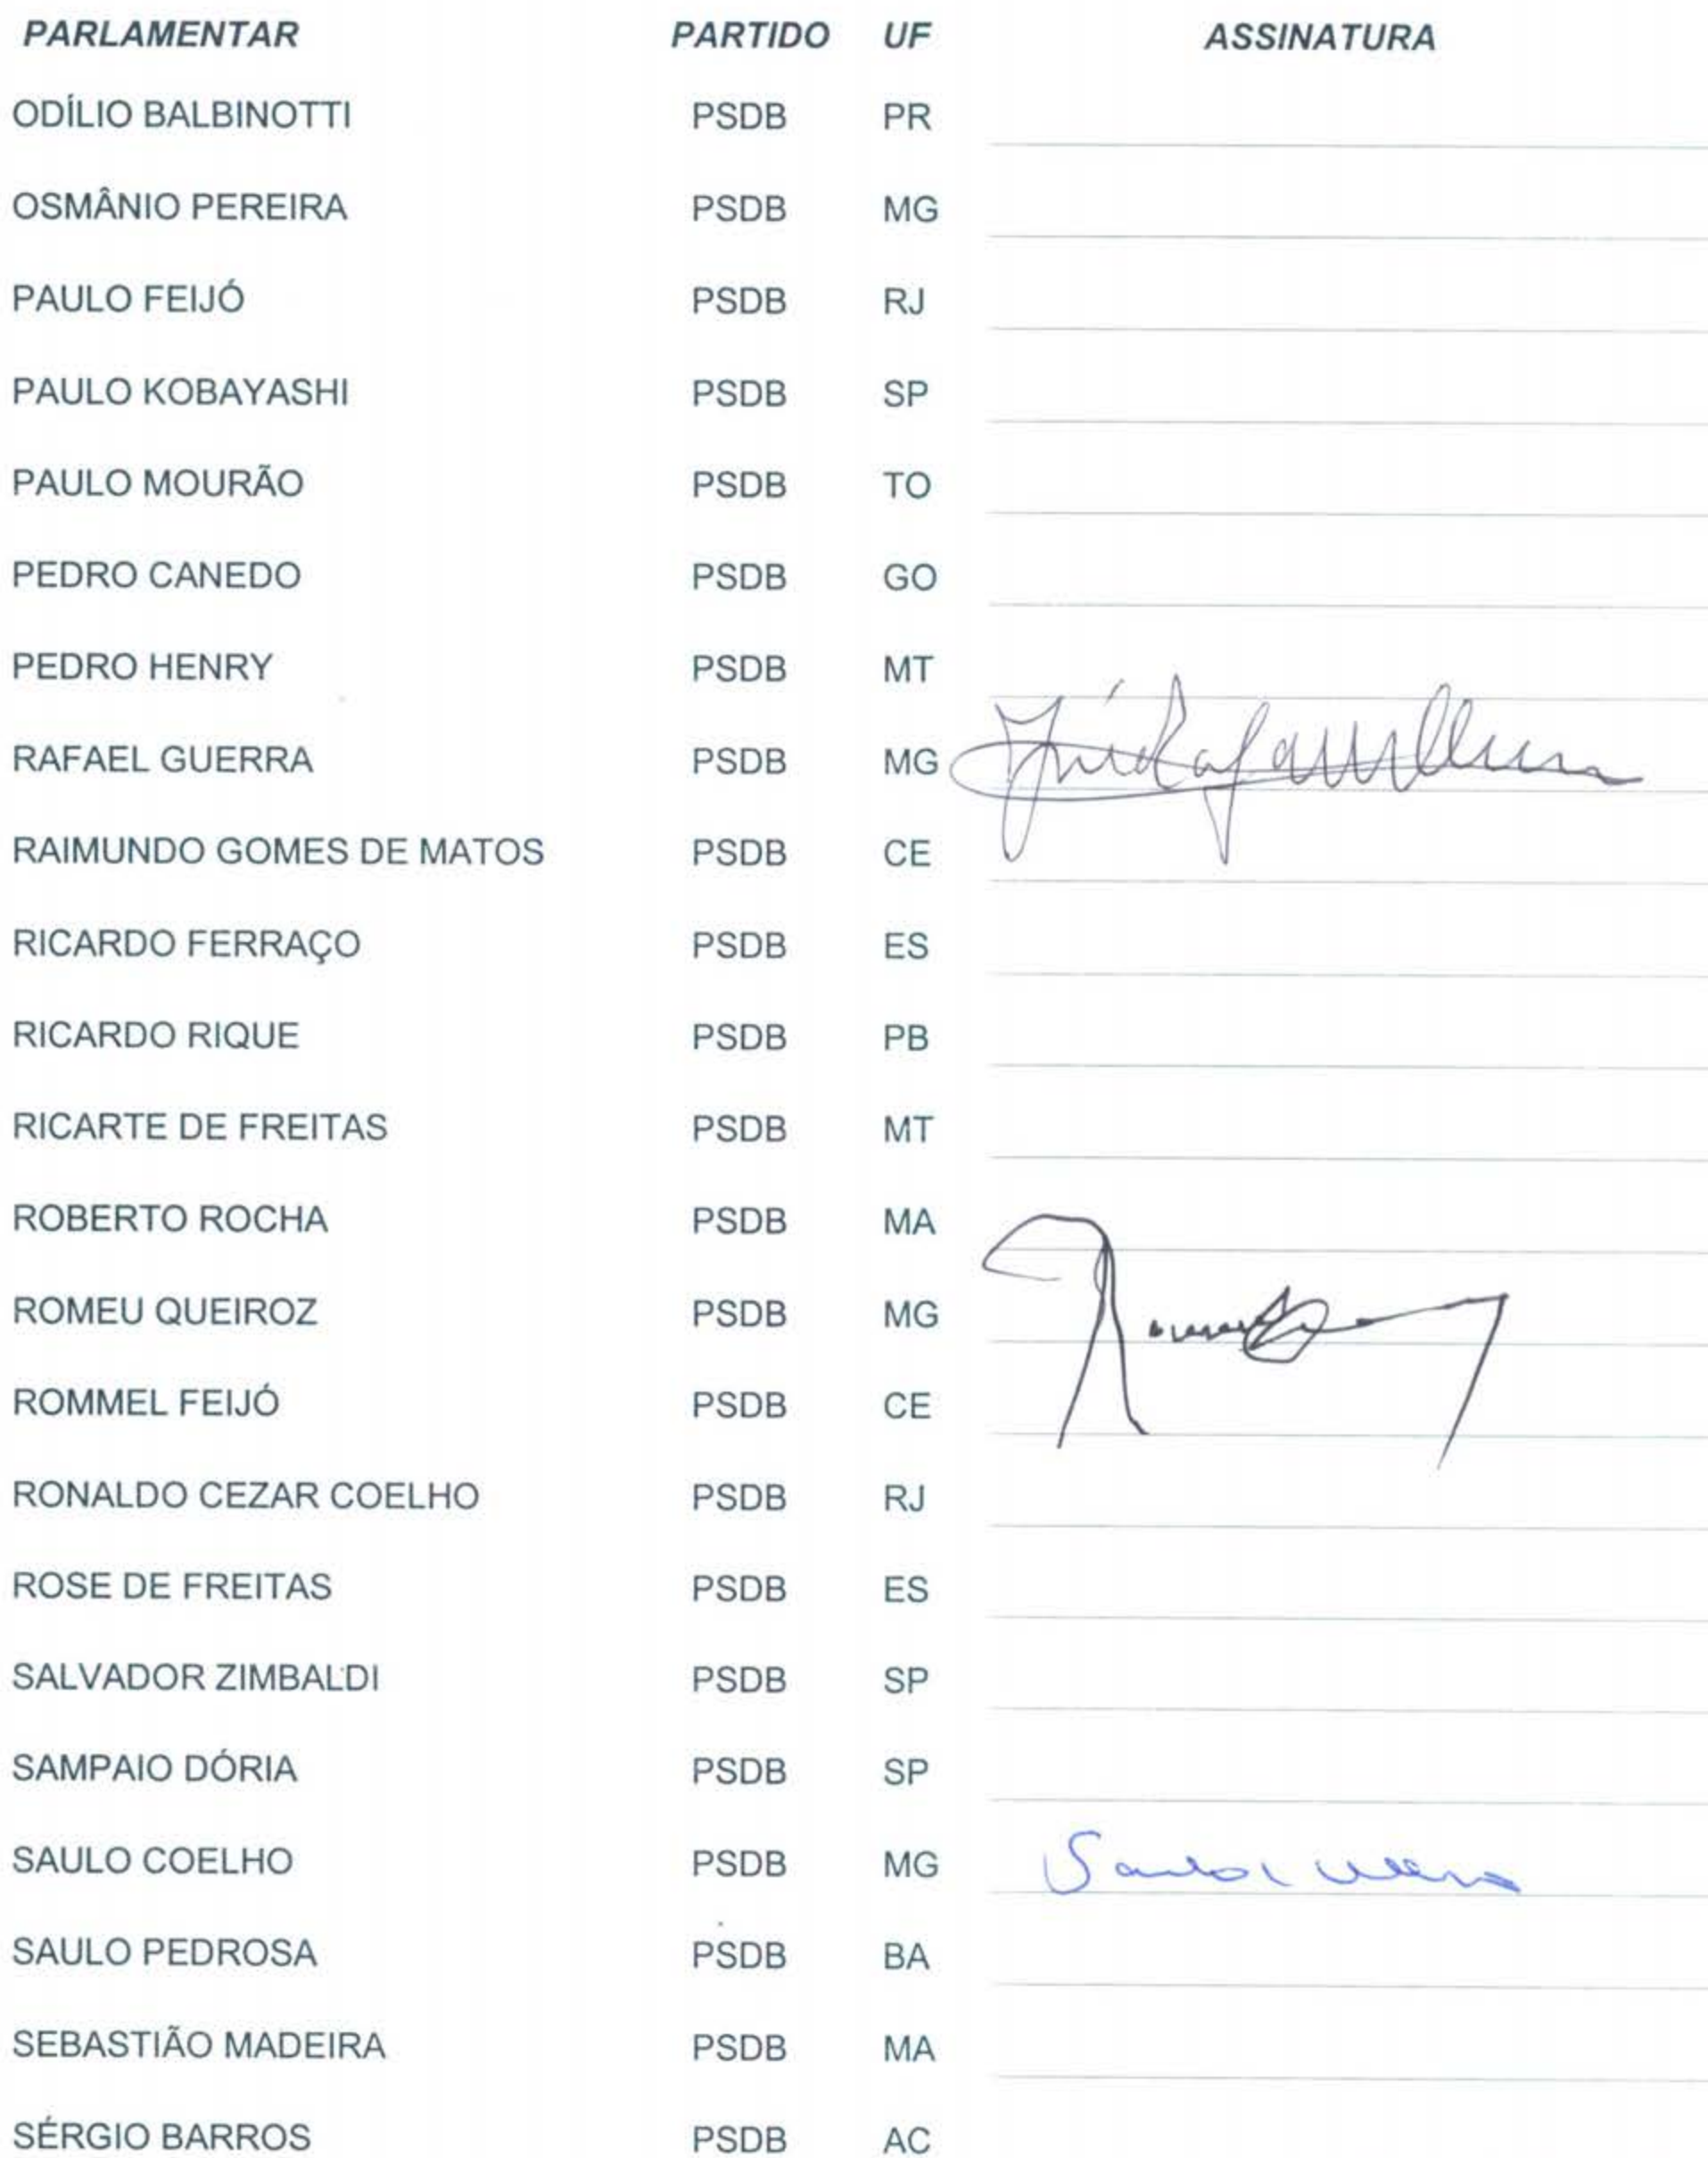 PARLAMENTAR PARTIDO UF ASSINATURA
ODÍLIO BALBINOTTI PSDB PR
OSMÂNIO PEREIRA PSDB MG
PAULO FEIJÓ PSDB RJ
PAULO KOBAYASHI PSDB SP
PAULO MOURÃO PSDB TO
PEDRO CANEDO PSDB GO
PEDRO HENRY PSDB MT
RAFAEL GUERRA PSDB MG
RAIMUNDO GOMES DE MATOS PSDB CE
RICARDO FERRAÇO PSDB ES
RICARDO RIQUE PSDB PB
RICARTE DE FREITAS PSDB MT
ROBERTO ROCHA PSDB MA
ROMEU QUEIROZ PSDB MG
ROMMEL FEIJÓ PSDB CE
RONALDO CEZAR COELHO PSDB RJ
ROSE DE FREITAS PSDB ES
SALVADOR ZIMBALDI PSDB SP
SAMPAIO DÓRIA PSDB SP
SAULO COELHO PSDB MG
SAULO PEDROSA PSDB BA
SEBASTIÃO MADEIRA PSDB MA
SÉRGIO BARROS PSDB AC